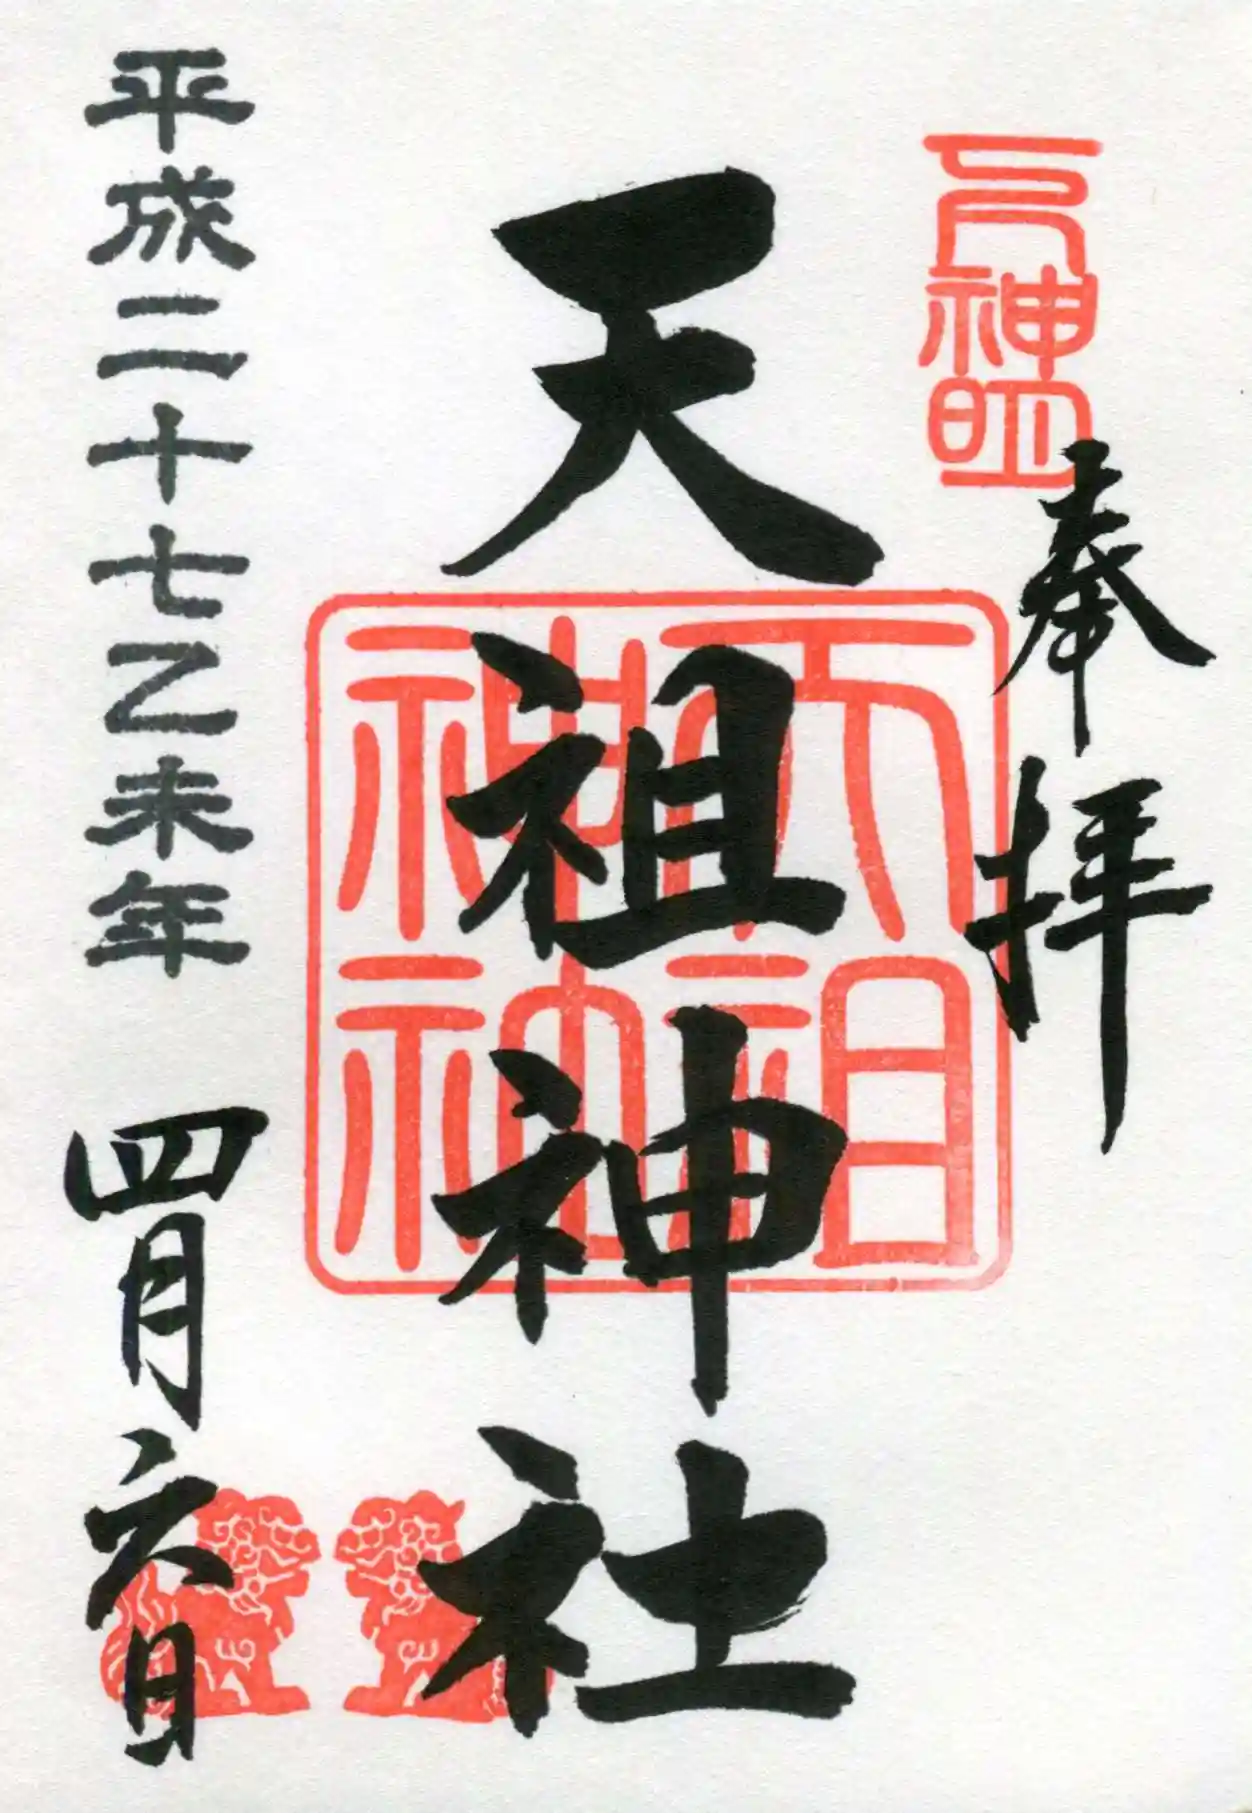 神明
奉拝
天祖神社
平成二十七乙未年 四月六日